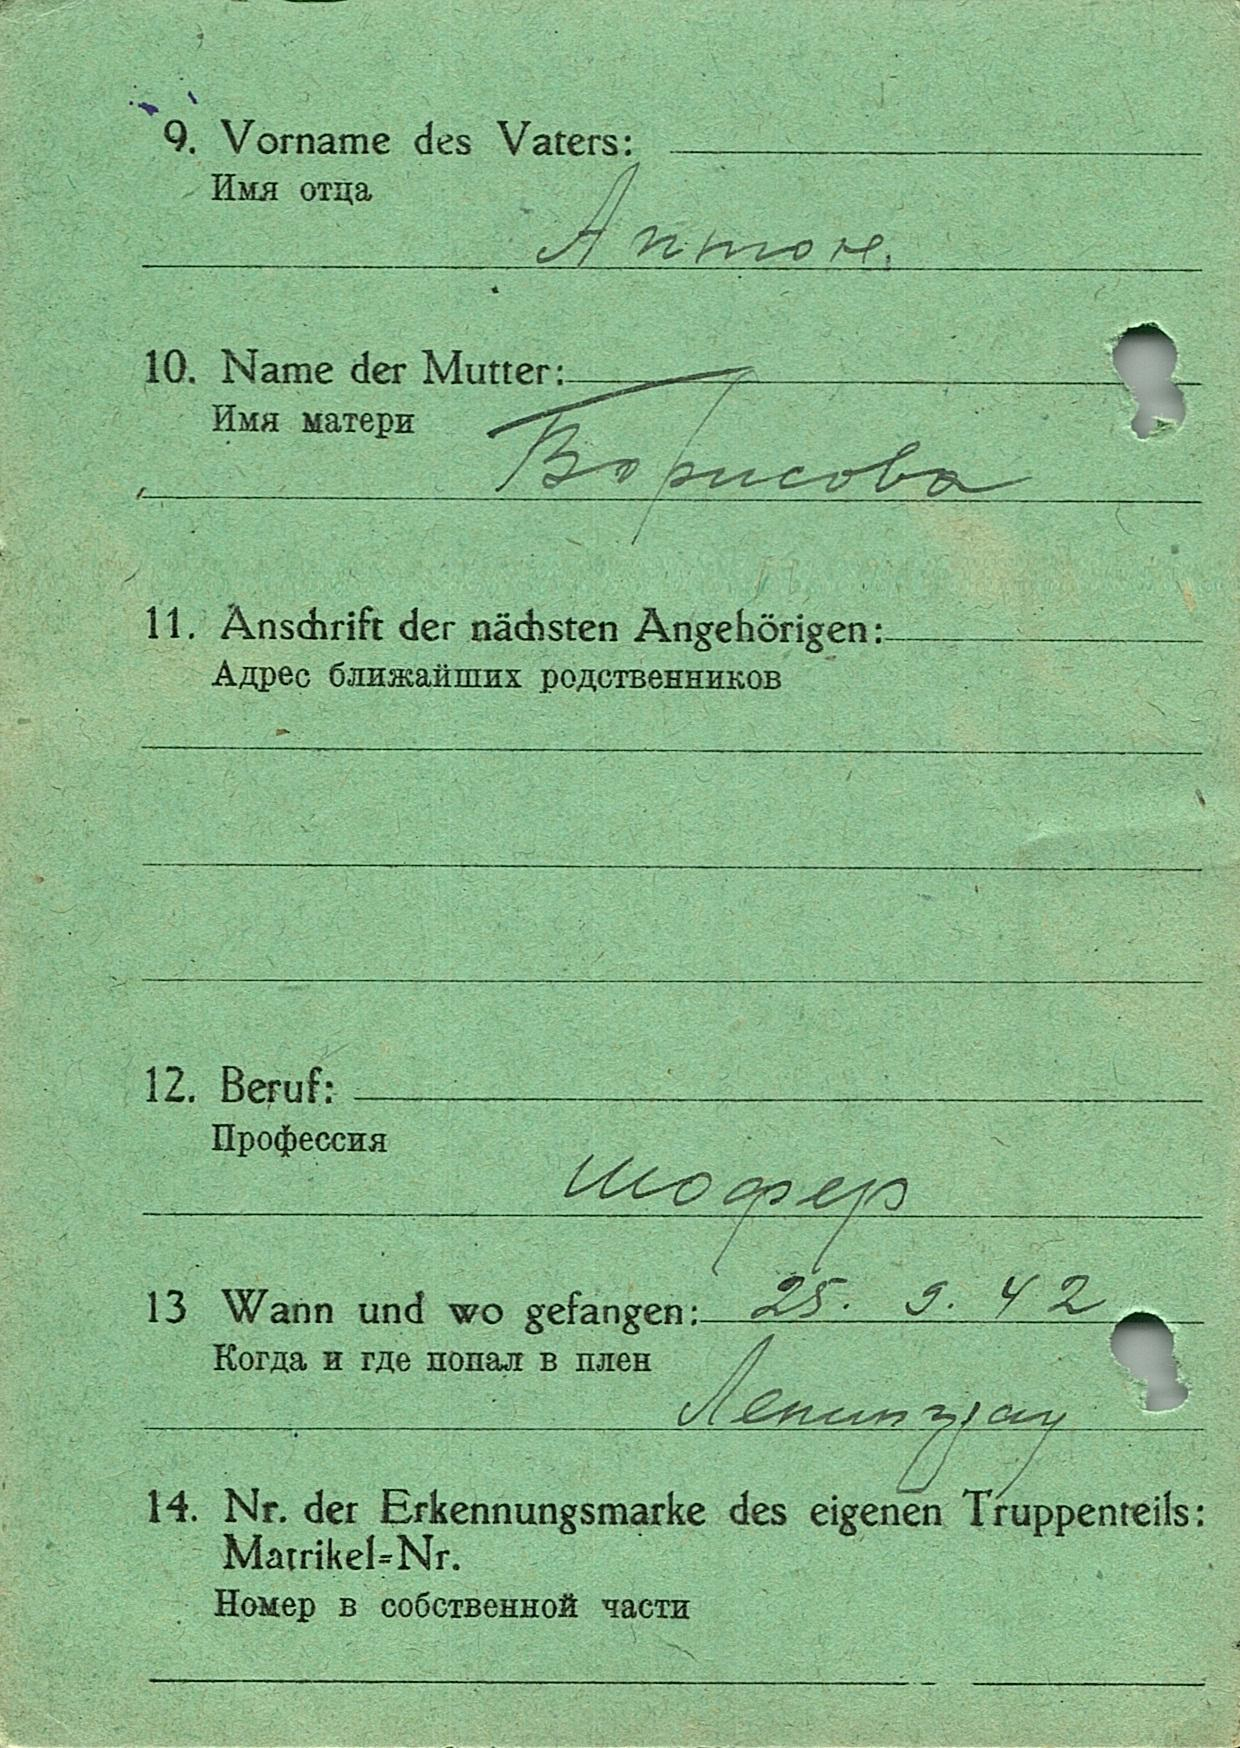 9. Vorname des Vaters:
Имя отца
Антон.
10. Name der Mutter:
Имя матери
Борисова
11. Anschrift der nächsten Angehörigen:
Адрес ближайших родственников
12. Beruf:
Профессия
шофер
13 Wann und wo gefangen: 25. 9. 42
Когда и где попал в плен
Ленинград
14. Nr. der Erkennungsmarke des eigenen Truppenteils:
Matrikel=Nr.
Номер в собственной части